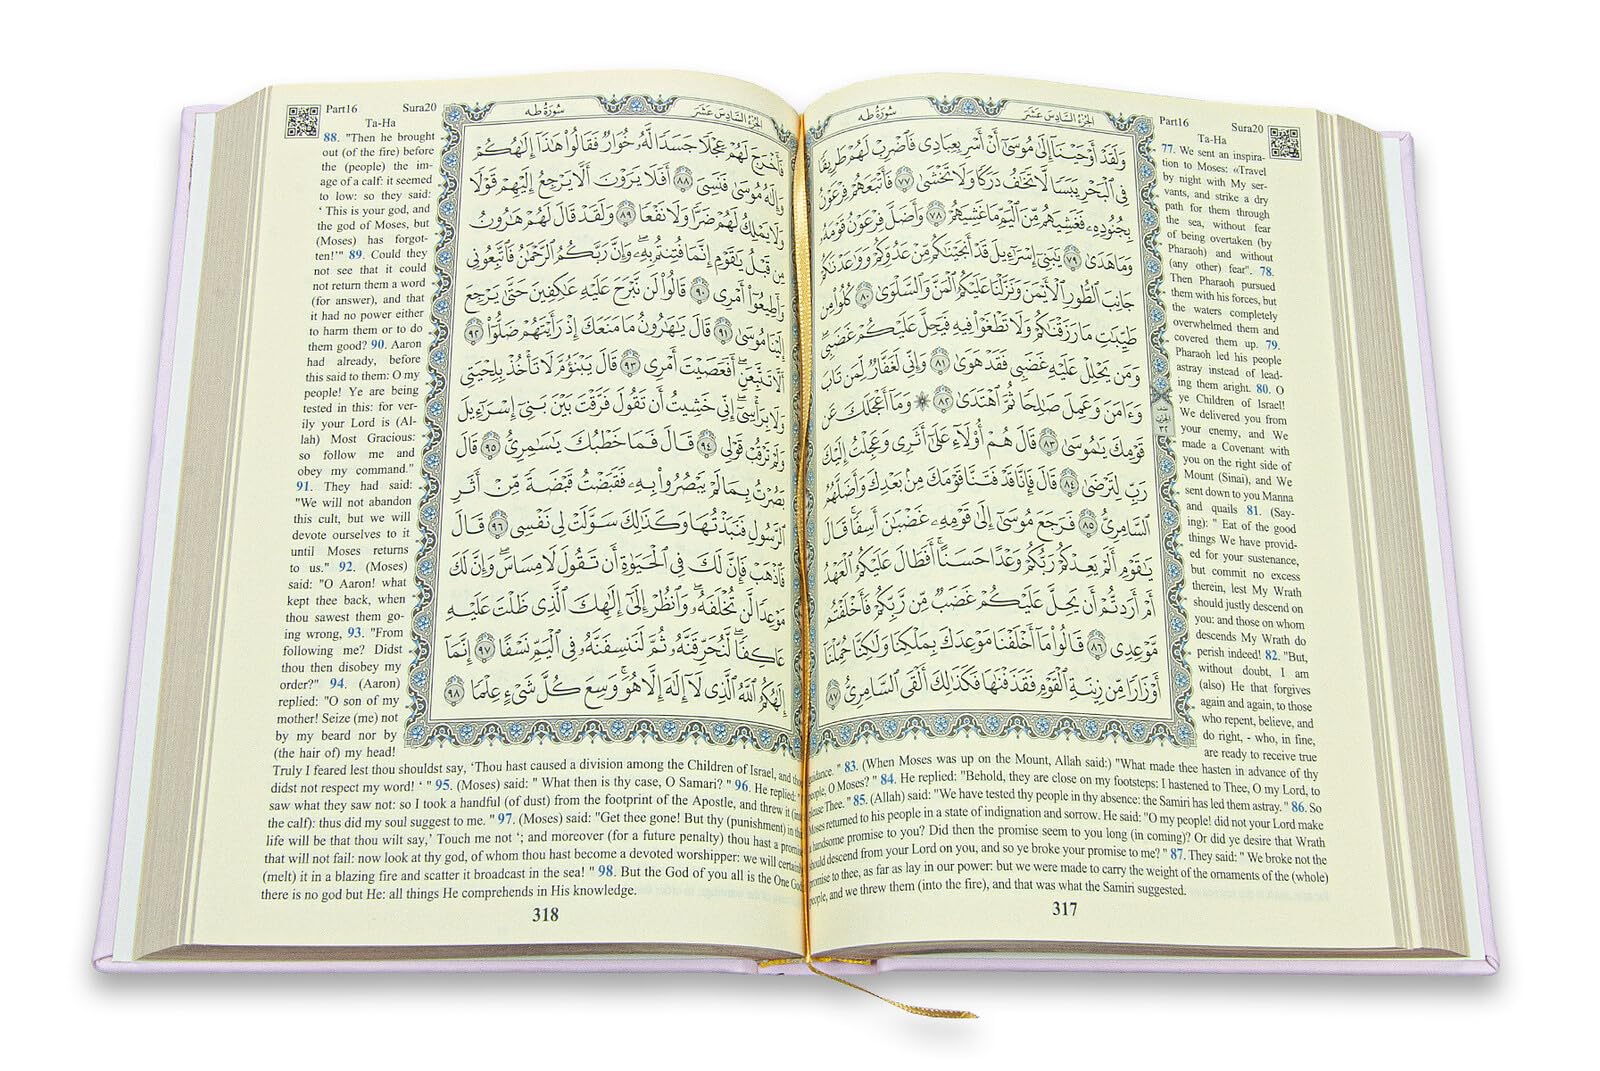 Part16
Sura20
Ta-Ha
الجزء السادس عشر
سورة طه
وَلَقَدْ أَوْحَيْنَآ إِلَىٰ مُوسَىٰٓ أَنْ أَسْرِ بِعِبَادِى فَٱضْرِبْ لَهُمْ طَرِيقًا
فِى ٱلْبَحْرِ يَبَسًا لَّا تَخَٰفُ دَرَكًا وَلَا تَخْشَىٰ ٧٧ فَأَتْبَعَهُمْ فِرْعَوْنُ
بِجُنُودِهِۦ فَغَشِيَهُم مِّنَ ٱلْيَمِّ مَا غَشِيَهُمْ ٧٨ وَأَضَلَّ فِرْعَوْنُ قَوْمَهُۥ
وَمَا هَدَىٰ ٧٩ يَٰبَنِىٓ إِسْرَٰٓءِيلَ قَدْ أَنجَيْنَٰكُم مِّنْ عَدُوِّكُمْ وَوَٰعَدْنَٰكُمْ
جَانِبَ ٱلطُّورِ ٱلْأَيْمَنَ وَنَزَّلْنَا عَلَيْكُمُ ٱلْمَنَّ وَٱلسَّلْوَىٰ ٨٠ كُلُوا۟ مِن
طَيِّبَٰتِ مَا رَزَقْنَٰكُمْ وَلَا تَطْغَوْا۟ فِيهِ فَيَحِلَّ عَلَيْكُمْ غَضَبِى
وَمَن يَحْلِلْ عَلَيْهِ غَضَبِى فَقَدْ هَوَىٰ ٨١ وَإِنِّى لَغَفَّارٌ لِّمَن تَابَ
وَءَامَنَ وَعَمِلَ صَٰلِحًا ثُمَّ ٱهْتَدَىٰ ٨٢ ۞ وَمَآ أَعْجَلَكَ عَن
قَوْمِكَ يَٰمُوسَىٰ ٨٣ قَالَ هُمْ أُو۟لَآءِ عَلَىٰٓ أَثَرِى وَعَجِلْتُ إِلَيْكَ
رَبِّ لِتَرْضَىٰ ٨٤ قَالَ فَإِنَّا قَدْ فَتَنَّا قَوْمَكَ مِنۢ بَعْدِكَ وَأَضَلَّهُمُ
ٱلسَّامِرِىُّ ٨٥ فَرَجَعَ مُوسَىٰٓ إِلَىٰ قَوْمِهِۦ غَضْبَٰنَ أَسِفًا ۚ قَالَ
يَٰقَوْمِ أَلَمْ يَعِدْكُمْ رَبُّكُمْ وَعْدًا حَسَنًا ۚ أَفَطَالَ عَلَيْكُمُ ٱلْعَهْدُ
أَمْ أَرَدتُّمْ أَن يَحِلَّ عَلَيْكُمْ غَضَبٌ مِّن رَّبِّكُمْ فَأَخْلَفْتُم
مَّوْعِدِى ٨٦ قَالُوا۟ مَآ أَخْلَفْنَا مَوْعِدَكَ بِمَلْكِنَا وَلَٰكِنَّا حُمِّلْنَآ
أَوْزَارًا مِّن زِينَةِ ٱلْقَوْمِ فَقَذَفْنَٰهَا فَكَذَٰلِكَ أَلْقَى ٱلسَّامِرِىُّ ٨٧
77. We sent an inspira-
tion to Moses: «Travel
by night with My ser-
vants, and strike a dry
path for them through
the sea, without fear
of being overtaken (by
Pharaoh) and without
(any other) fear". 78.
Then Pharaoh pursued
them with his forces, but
the waters completely
overwhelmed them and
covered them up. 79.
Pharaoh led his people
astray instead of lead-
ing them aright. 80. O
ye Children of Israel!
We delivered you from
your enemy, and We
made a Covenant with
you on the right side of
Mount (Sinai), and We
sent down to you Manna
and quails 81. (Say-
ing): " Eat of the good
things We have provid-
ed for your sustenance,
but commit no excess
therein, lest My Wrath
should justly descend on
you: and those on whom
descends My Wrath do
perish indeed! 82. "But,
without doubt, I am
(also) He that forgives
again and again, to those
who repent, believe, and
do right, - who, in fine,
are ready to receive true
guidance. " 83. (When Moses was up on the Mount, Allah said:) "What made thee hasten in advance of thy
people, O Moses? " 84. He replied: "Behold, they are close on my footsteps: I hastened to Thee, O my Lord, to
please Thee. " 85. (Allah) said: "We have tested thy people in thy absence: the Samiri has led them astray. " 86. So
Moses returned to his people in a state of indignation and sorrow. He said: "O my people! did not your Lord make
a handsome promise to you? Did then the promise seem to you long (in coming)? Or did ye desire that Wrath
should descend from your Lord on you, and so ye broke your promise to me? " 87. They said: " We broke not the
promise to thee, as far as lay in our power: but we were made to carry the weight of the ornaments of the (whole)
people, and we threw them (into the fire), and that was what the Samiri suggested.
317
Part16
Sura20
Ta-Ha
الجزء السادس عشر
سورة طه
فَأَخْرَجَ لَهُمْ عِجْلًا جَسَدًا لَّهُۥ خُوَارٌ فَقَالُوا۟ هَٰذَآ إِلَٰهُكُمْ
وَإِلَٰهُ مُوسَىٰ فَنَسِىَ ٨٨ أَفَلَا يَرَوْنَ أَلَّا يَرْجِعُ إِلَيْهِمْ قَوْلًا
وَلَا يَمْلِكُ لَهُمْ ضَرًّا وَلَا نَفْعًا ٨٩ وَلَقَدْ قَالَ لَهُمْ هَٰرُونُ
مِن قَبْلُ يَٰقَوْمِ إِنَّمَا فُتِنتُم بِهِۦ ۖ وَإِنَّ رَبَّكُمُ ٱلرَّحْمَٰنُ فَٱتَّبِعُونِى
وَأَطِيعُوٓا۟ أَمْرِى ٩٠ قَالُوا۟ لَن نَّبْرَحَ عَلَيْهِ عَٰكِفِينَ حَتَّىٰ يَرْجِعَ
إِلَيْنَا مُوسَىٰ ٩١ قَالَ يَٰهَٰرُونُ مَا مَنَعَكَ إِذْ رَأَيْتَهُمْ ضَلُّوٓا۟ ٩٢
أَلَّا تَتَّبِعَنِ ۖ أَفَعَصَيْتَ أَمْرِى ٩٣ قَالَ يَبْنَؤُمَّ لَا تَأْخُذْ بِلِحْيَتِى
وَلَا بِرَأْسِىٓ ۖ إِنِّى خَشِيتُ أَن تَقُولَ فَرَّقْتَ بَيْنَ بَنِىٓ إِسْرَٰٓءِيلَ
وَلَمْ تَرْقُبْ قَوْلِى ٩٤ قَالَ فَمَا خَطْبُكَ يَٰسَٰمِرِىُّ ٩٥ قَالَ
بَصُرْتُ بِمَا لَمْ يَبْصُرُوا۟ بِهِۦ فَقَبَضْتُ قَبْضَةً مِّنْ أَثَرِ
ٱلرَّسُولِ فَنَبَذْتُهَا وَكَذَٰلِكَ سَوَّلَتْ لِى نَفْسِى ٩٦ قَالَ
فَٱذْهَبْ فَإِنَّ لَكَ فِى ٱلْحَيَوٰةِ أَن تَقُولَ لَا مِسَاسَ ۖ وَإِنَّ لَكَ
مَوْعِدًا لَّن تُخْلَفَهُۥ ۖ وَٱنظُرْ إِلَىٰٓ إِلَٰهِكَ ٱلَّذِى ظَلْتَ عَلَيْهِ
عَاكِفًا ۖ لَّنُحَرِّقَنَّهُۥ ثُمَّ لَنَنسِفَنَّهُۥ فِى ٱلْيَمِّ نَسْفًا ٩٧ إِنَّمَآ
إِلَٰهُكُمُ ٱللَّهُ ٱلَّذِى لَآ إِلَٰهَ إِلَّا هُوَ ۚ وَسِعَ كُلَّ شَىْءٍ عِلْمًا ٩٨
88. "Then he brought
out (of the fire) before
the (people) the im-
age of a calf: it seemed
to low: so they said:
‘ This is your god, and
the god of Moses, but
(Moses) has forgot-
ten!’" 89. Could they
not see that it could
not return them a word
(for answer), and that
it had no power either
to harm them or to do
them good? 90. Aaron
had already, before
this said to them: O my
people! Ye are being
tested in this: for ver-
ily your Lord is (Al-
lah) Most Gracious:
so follow me and
obey my command."
91. They had said:
"We will not abandon
this cult, but we will
devote ourselves to it
until Moses returns
to us." 92. (Moses)
said: "O Aaron! what
kept thee back, when
thou sawest them go-
ing wrong, 93. "From
following me? Didst
thou then disobey my
order?" 94. (Aaron)
replied: "O son of my
mother! Seize (me) not
by my beard nor by
(the hair of) my head!
Truly I feared lest thou shouldst say, ‘Thou hast caused a division among the Children of Israel, and
didst not respect my word! ‘ " 95. (Moses) said: " What then is thy case, O Samari? " 96. He replied: "
saw what they saw not: so I took a handful (of dust) from the footprint of the Apostle, and threw it (into
the calf): thus did my soul suggest to me. " 97. (Moses) said: "Get thee gone! But thy (punishment) in this
life will be that thou wilt say,’ Touch me not ‘; and moreover (for a future penalty) thou hast a promise
that will not fail: now look at thy god, of whom thou hast become a devoted worshipper: we will certainly
(melt) it in a blazing fire and scatter it broadcast in the sea! " 98. But the God of you all is the One God
there is no god but He: all things He comprehends in His knowledge.
318